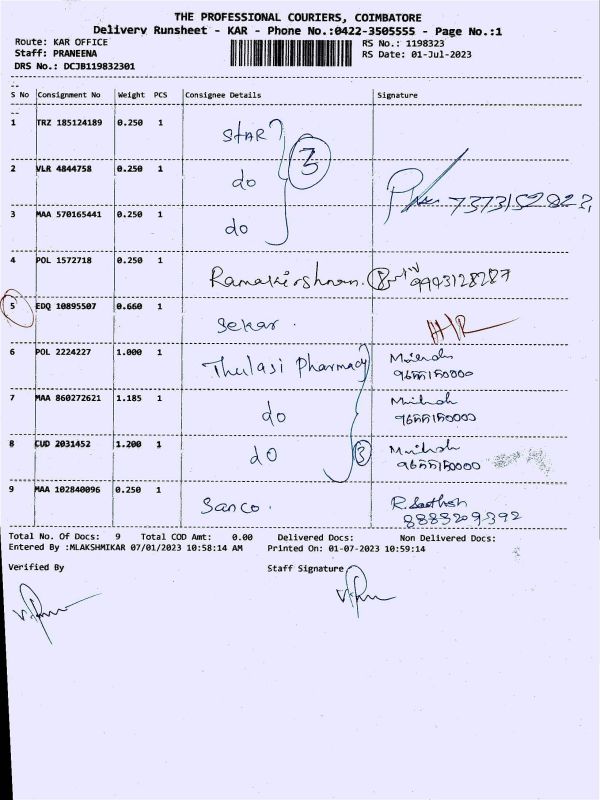 THE PROFESSIONAL COURIERS, COIMBATORE
Delivery Runsheet - KAR - Phone No.:0422-3505555 - Page No.:1
Route: KAR OFFICE RS No.: 1198323
Staff: PRANEENA RS Date: 01-Jul-2023
DRS No.: DCJB119832301
S No Consignment No Weight PCS Consignee Details Signature
1 TRZ 185124189 0.250 1 STAR
2 VLR 4844758 0.250 1 do 3 7373152823
3 MAA 570165441 0.250 1 do
4 POL 1572718 0.250 1 Ramakirshnan. 9943128287
5 EDQ 10895507 0.660 1 Sekar.
6 POL 2224227 1.000 1 Thulasi Pharmacy
9655150000
7 MAA 860272621 1.185 1 do
9655150000
8 CUD 2031452 1.200 1 do 3
9655150000
9 MAA 102840096 0.250 1 Sanco. R. Sathish
8883209392
Total No. Of Docs: 9 Total COD Amt: 0.00 Delivered Docs: Non Delivered Docs:
Entered By :MLAKSHMIKAR 07/01/2023 10:58:14 AM Printed On: 01-07-2023 10:59:14
Verified By Staff Signature